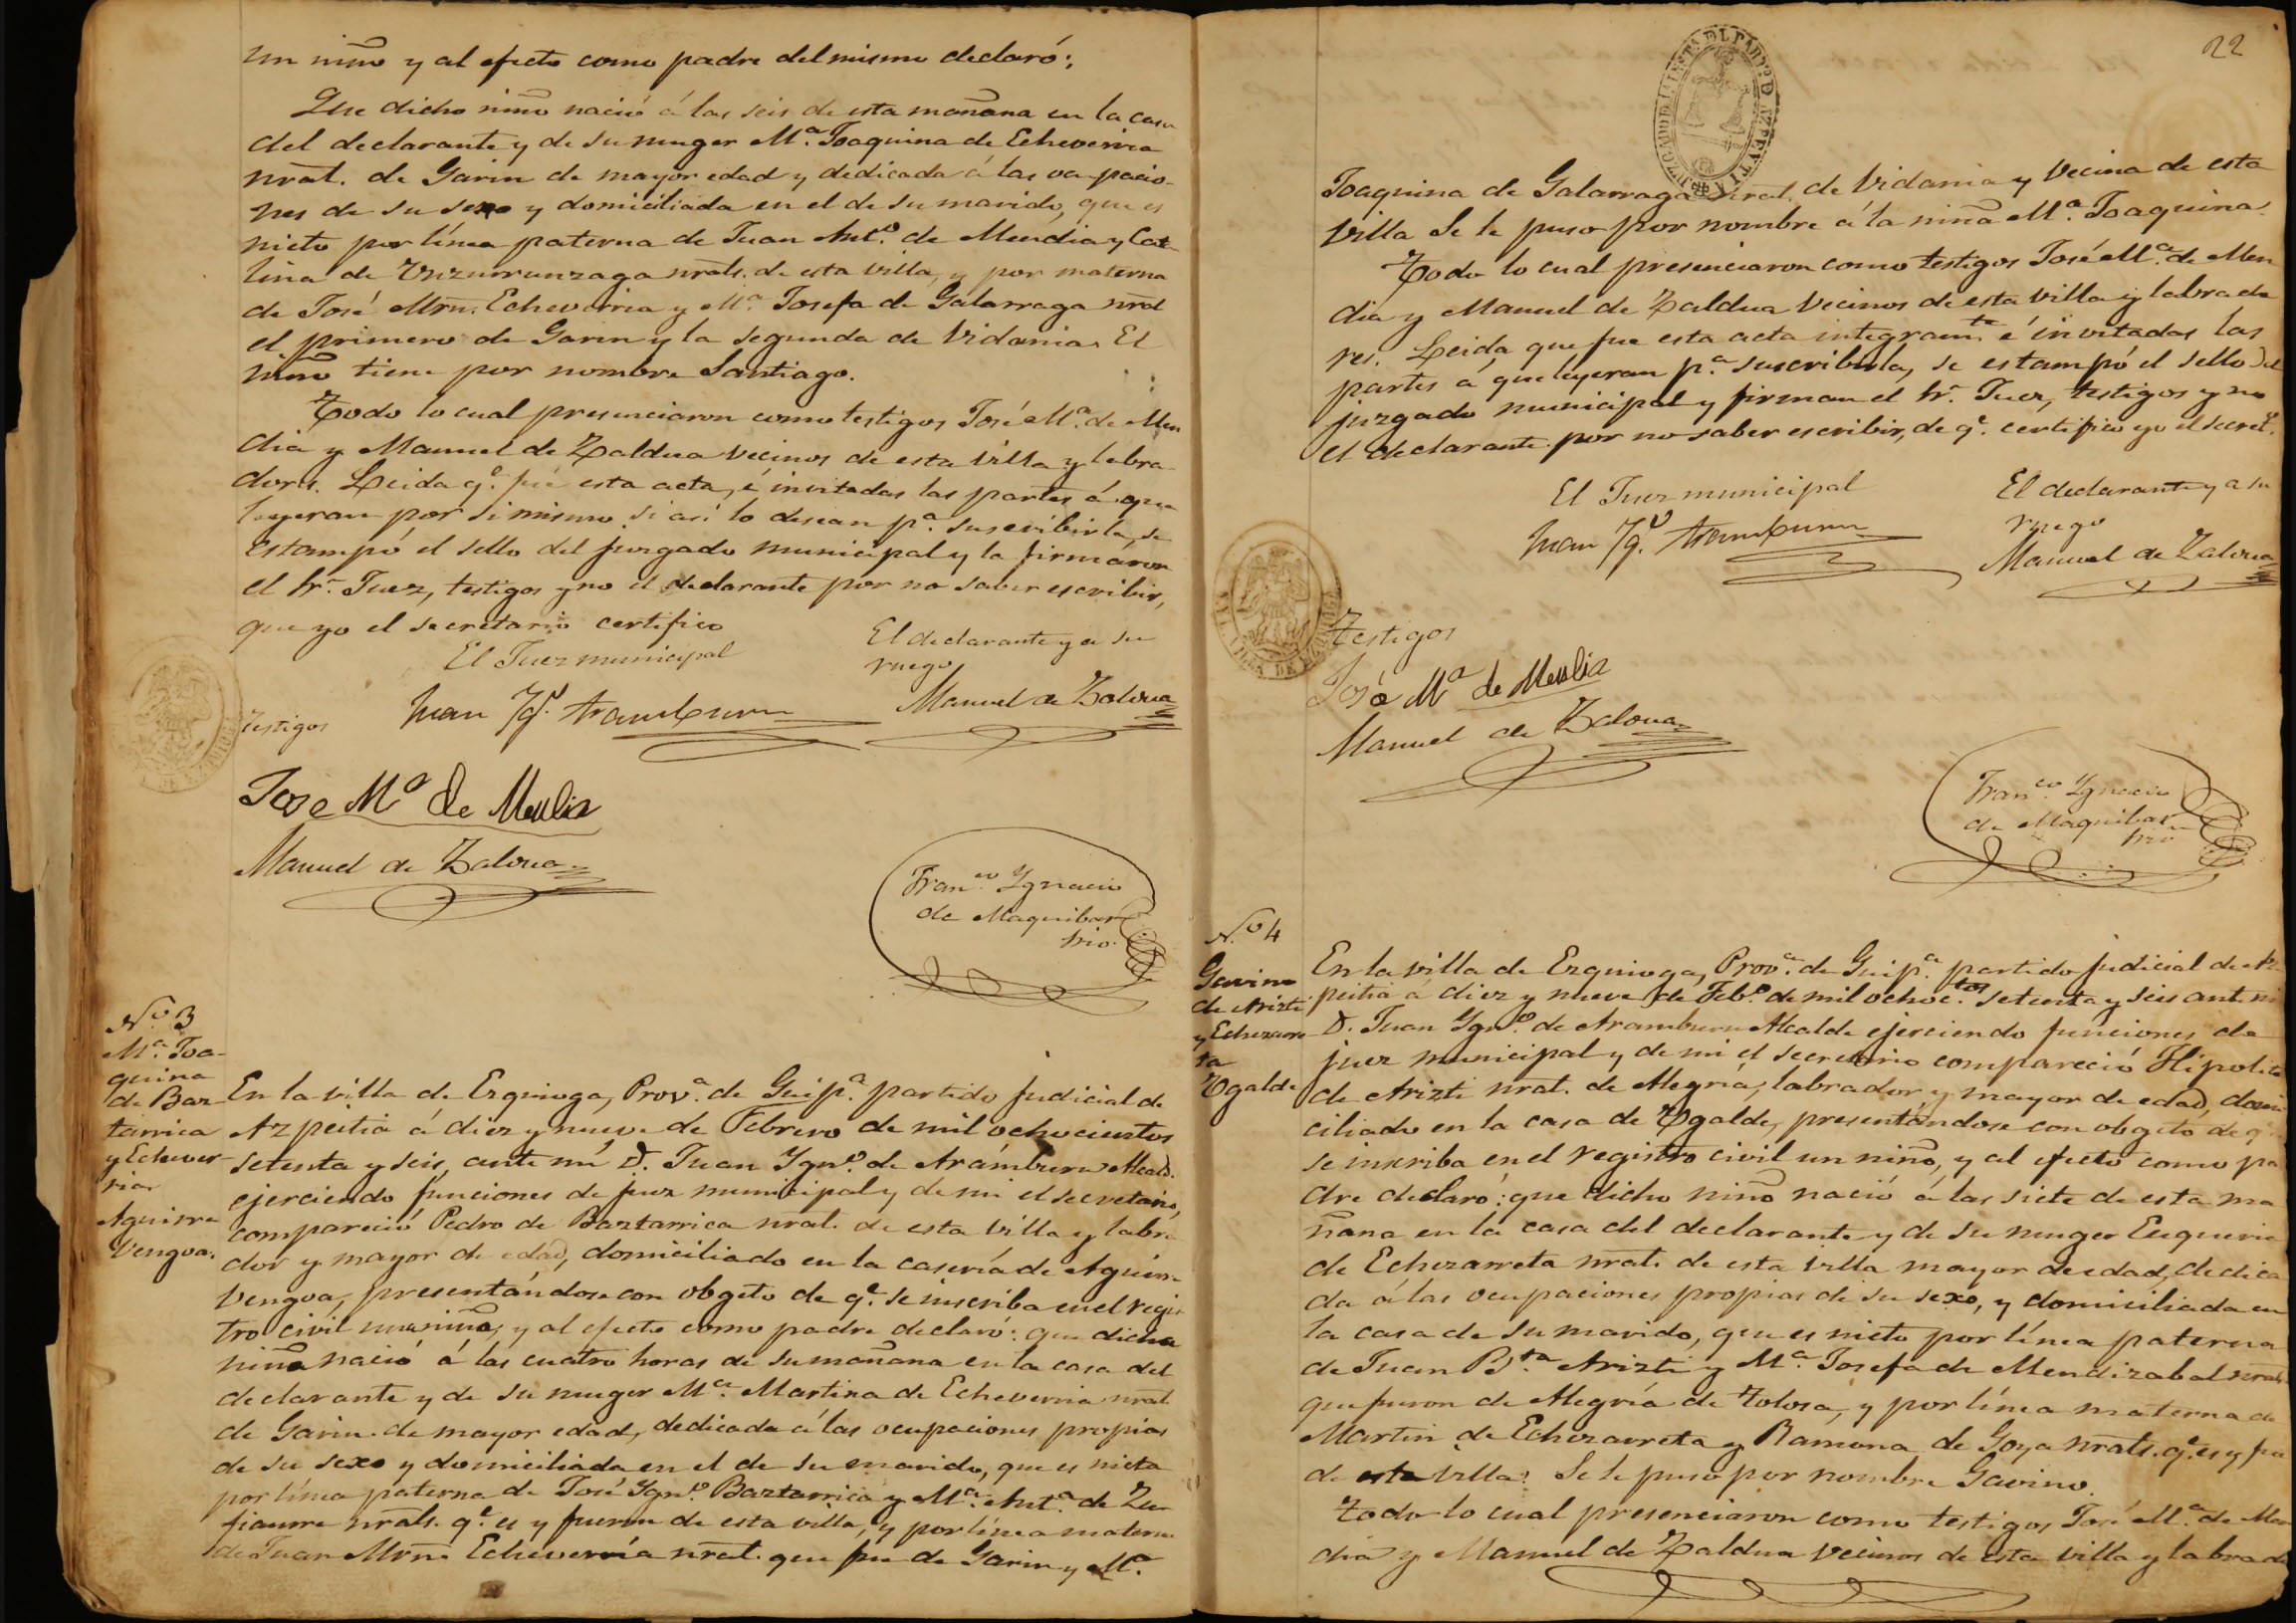 un niño y al efecto como padre del mismo declaró:
Que dicho niño nació á las seis de esta mañana en la casa
del declarante y de su muger Mª. Joaquina de Echeverria
nrāl. de Garin de mayor edad y dedicada á las ocupacio-
nes de su sexo y domiciliada en el de su marido, que es
nieto por línea paterna de Juan Antº. de Mendia y Cata
lina de Unzurrunzaga nrals. de esta villa, y por materna
de José Mrn. Echeverria y Mª. Josefa de Galarraga nral
el primero de Garin y la segunda de Vidania. El
niño tiene por nombre Santiago.
Todo lo cual presenciaron como testigos José Mª. de Men
dia y Manuel de Zaldua vecinos de esta villa y labra-
dores. Leida qᵉ. fué esta acta, é invitadas las partes á que
leyeran por si mismo si así lo desean pª. suscribirla, se
estampó el sello del juzgado municipal y la firmáron
el Sr. Juez, testigos y no el declarante por no saber escribir,
que yo el secretario certifico
El Juez municipal
El declarante y a su
ruego
Juan Ygº. Aramburu
Manuel de Zaldua
Testigos
Jose Mª de Mendia
Manuel de Zaldua
Franco. Ygnacio
de Maquibar
Srio.
Nº 3
Mª. Joa-
quina
de Baz
tarrica
y Echever
ria
Aguirre
Vengoa.
En la villa de Ezquioga, Provª. de Guipª. partido judicial de
Azpeitia á diez y nueve de Febrero de mil ochocientos
setenta y seis, ante mí D. Juan Ygnº. de Arámburu Alcald.
ejerciendo funciones de juez municipal y de mi el secretario,
compareció Pedro de Baztarrica nral. de esta villa y labra
dor y mayor de edad, domiciliado en la casería de Aguirre
Vengoa, presentándose con obgeto de qᵉ. se inscriba en el regis
tro civil una niña, y al efecto como padre declaró: que dicha
niña nació á las cuatro horas de su mañana en la casa del
declarante y de su muger Mª. Martina de Echeverria nral.
de Garin de mayor edad, dedicada á las ocupaciones propias
de su sexo y domiciliada en el de su marido, que es nieta
por línea paterna de José Ygnº. Baztarrica y Mª. Antª. de Zu
fiaurre nrals. qᵉ. es y fueron de esta villa, y por línea materna
de Juan Mrn. Echeverría nral. que fue de Garin y Mª.
22
JUZGADO DE 1ª INSTA. DEL PARTº. D AZPEYTIA
Joaquina de Galarraga nral. de Vidania y Vecina de esta
Villa Se le puso por nombre á la niña Mª. Joaquina.
Todo lo cual presenciaron como testigos José Mª. de Men
dia y Manuel de Zaldua Vecinos de esta villa y labrado
res. Leida que fue esta acta integramᵗᵉ é invitadas las
partes á que leyeran pª. suscribirla, se estampó el sello del
juzgado municipal y firman el Sr. Juez, testigos y no
el declarante por no saber escribir, de qᵉ. certifico yo el secretº.
El Juez municipal
El declarante y a su
ruego
Juan Ygº. Aramburu
Manuel de Zaldua
Testigos
José Mª de Mendia
Manuel de Zaldua
Franco. Ygnacio
de Maquibar
Srio
Nº 4
Gavino
de Arizti
y Echezarre
ta
Ugalde
En la villa de Ezquioga, Provª. de Guipª. partido judicial de Az
peitia á diez y nueve de Febº. de mil ochocᵗᵒˢ. setenta y seis ante mi
D. Juan Ygnº. de Aramburu Alcalde ejerciendo funciones de
juez municipal y de mi el secretario compareció Hipolito
de Arizti nral. de Alegría, labrador, y mayor de edad, domi
ciliado en la casa de Ugalde, presentándose con obgeto de qᵉ
se inscriba en el registro civil un niño, y al efecto como pa
dre declaró: que dicho niño nació á las siete de esta ma
ñana en la casa del declarante y de su muger Euqueria
de Echezarreta nral. de esta villa mayor de edad, dedica
da á las ocupaciones propias de su sexo, y domiciliada en
la casa de su marido, que es nieto por línea paterna
de Juan Bᵗᵃ Arizti y Mª. Josefa de Mendizabal nrals.
que fueron de Alegría de Tolosa, y por línea materna de
Martin de Echezarreta y Ramona de Goya nrals. qᵉ. es y fue
de esta villa. Se le puso por nombre Gavino.
Todo lo cual presenciaron como testigos José Mª. de Men
dia y Manuel de Zaldua Vecinos de esta villa y labrado